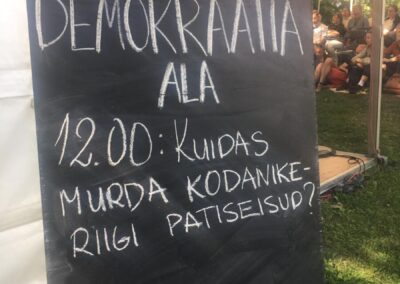 DEMOKRAATIA
ALA
12.00: KUIDAS
MURDA KODANIKE-
RIIGI PATISEISUD?